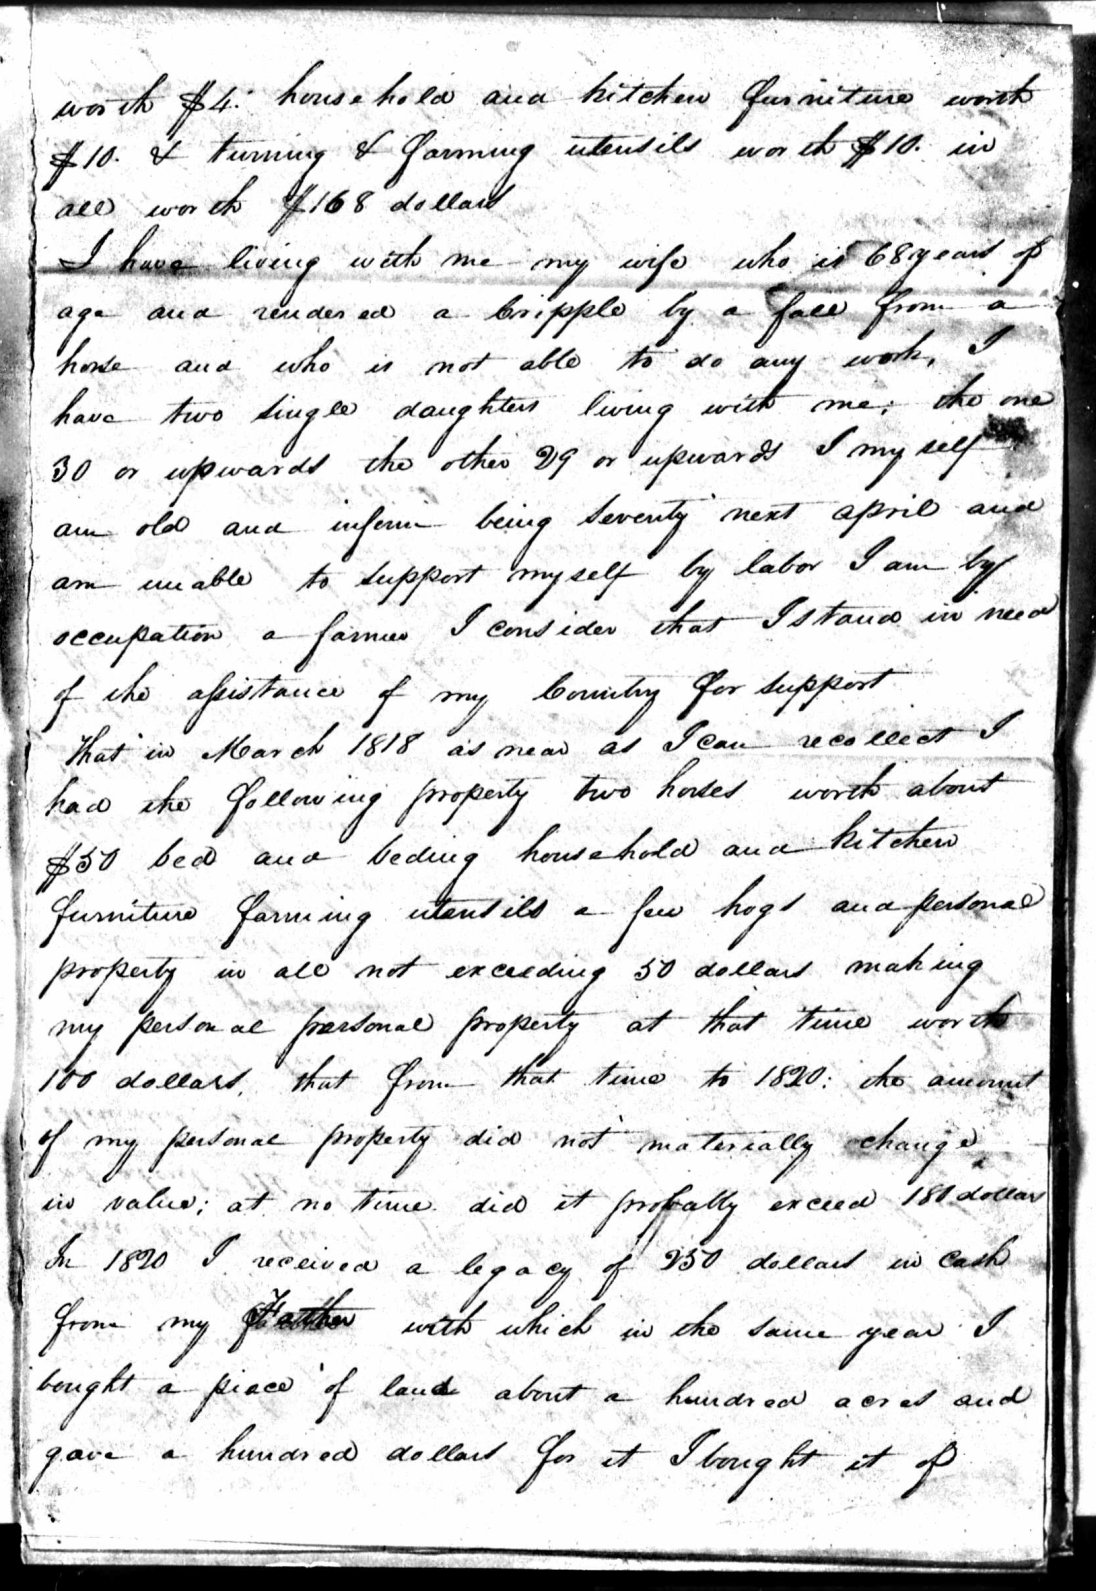 worth $4. household and kitchen furniture worth
$10. & turning & farming utensils worth $10. in
all worth $168 dollars
I have living with me my wife who is 68 years of
age and rendered a cripple by a fall from a
horse and who is not able to do any work, I
have two single daughters living with me; the one
30 or upwards the other 29 or upwards I my self
am old and infirm being seventy next april and
am unable to support myself by labor I am by
occupation a farmer I consider that I stand in need
of the assistance of my Country for support
That in March 1818 as near as I can recollect I
had the following property two horses worth about
$50 bed and beding household and kitchen
furniture farming utensils a few hogs and personal
property in all not exceeding 50 dollars making
my personal personal property at that time worth
100 dollars, that from that time to 1820: the amount
of my personal property did not materially change
in value; at no time did it probably exceed 180 dollars
In 1820 I received a legacy of 250 dollars in cash
from my Father with which in the same year I
bought a piece of land about a hundred acres and
gave a hundred dollars for it I bought it of